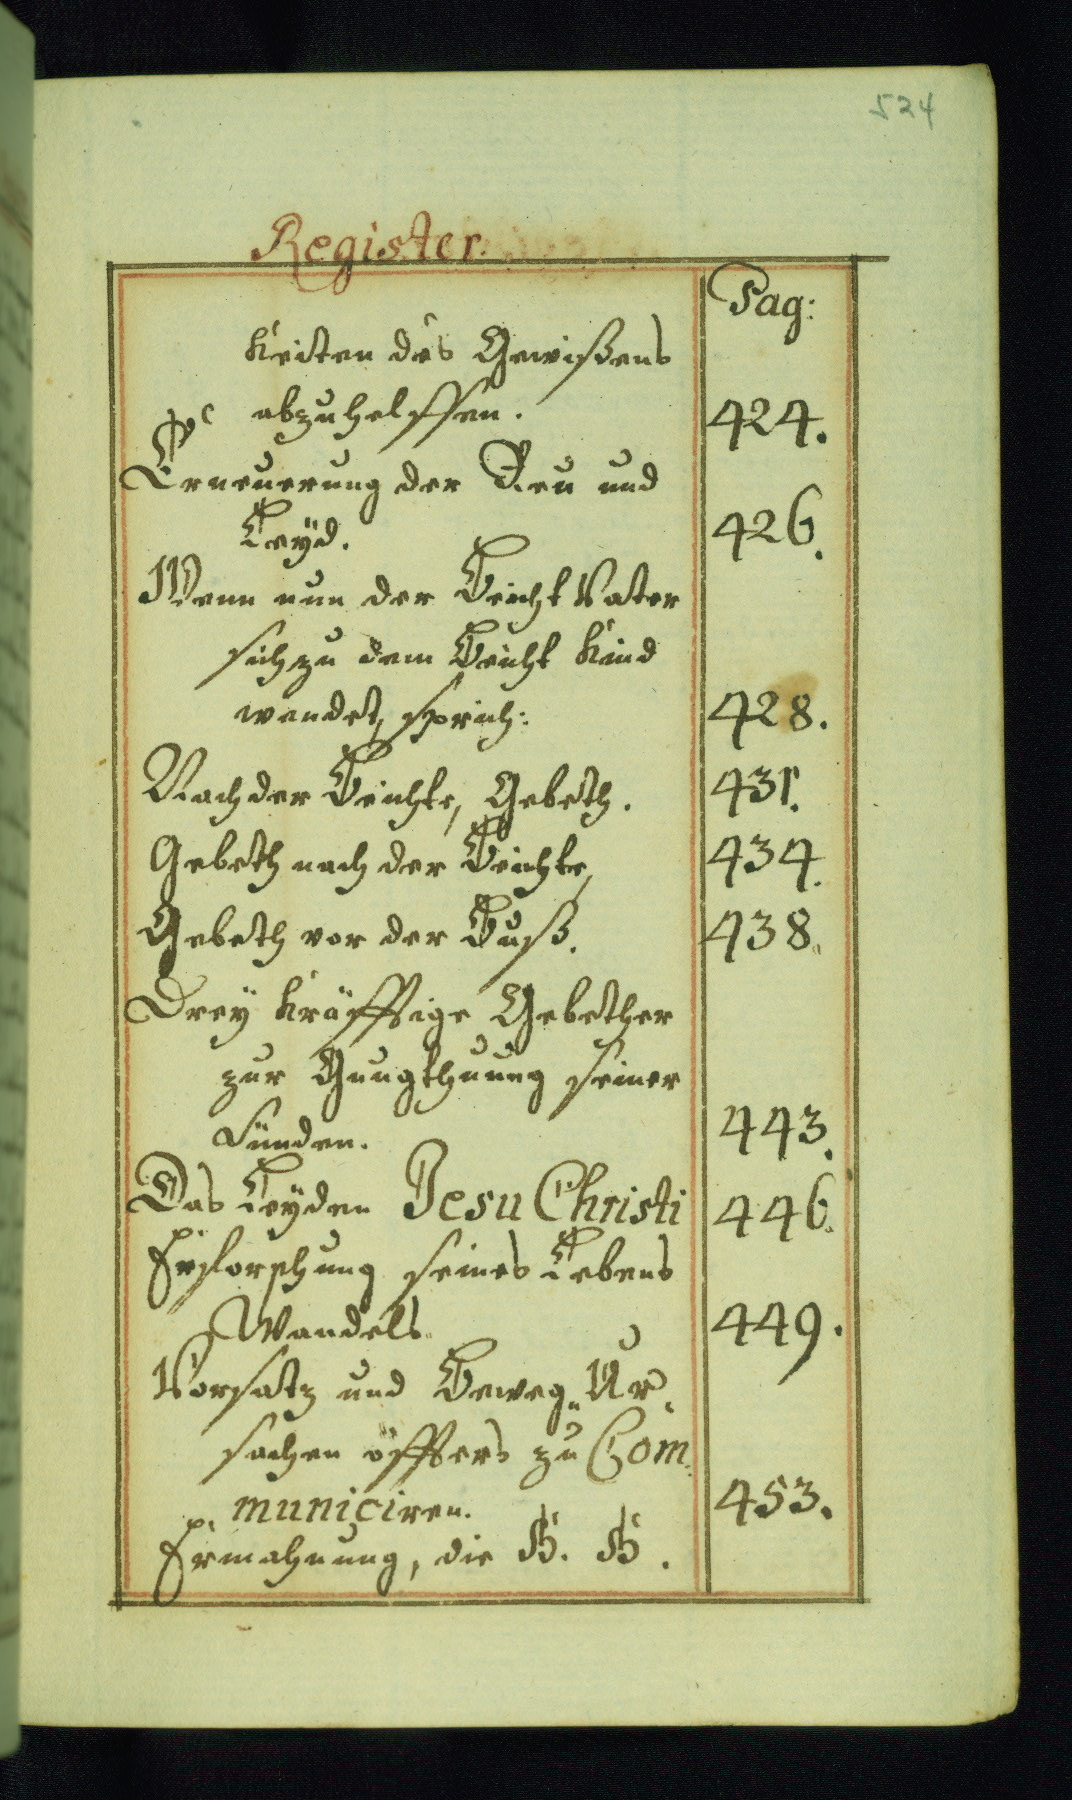 524
Register.
Pag:
keiten des Gewißens
abzuhelffen. 424.
Erneuerung der Reu und
Leÿd. 426.
Wenn nun der Beicht Vater
sich zu dem Beicht Kind
wendet, sprich: 428.
Nach der Beichte, Gebeth. 431.
Gebeth nach der Beichte, 434.
Gebeth vor der Buß. 438.
Dreÿ kräfftige Gebether
zur Gnugthuung seiner
Sünden. 443.
Das Leÿden Jesu Christi 446.
Erforschung seines Lebens
Wandels. 449.
Vorsatz und Beweg-Ur-
sachen öffters zu Com-
municiren. 453.
Ermahnung, die H. H.